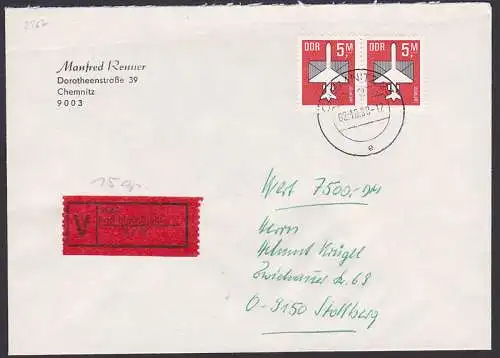 Manfred Renner
Dorotheenstraße 39
Chemnitz
9003
DDR 5,M
DDR 5,M
02.10.90-17
e
15 gr.
V
Wert 7500,- DM
Herrn
Helmut Krügel
Zwickauer Str. 68
O-9150 Stollberg